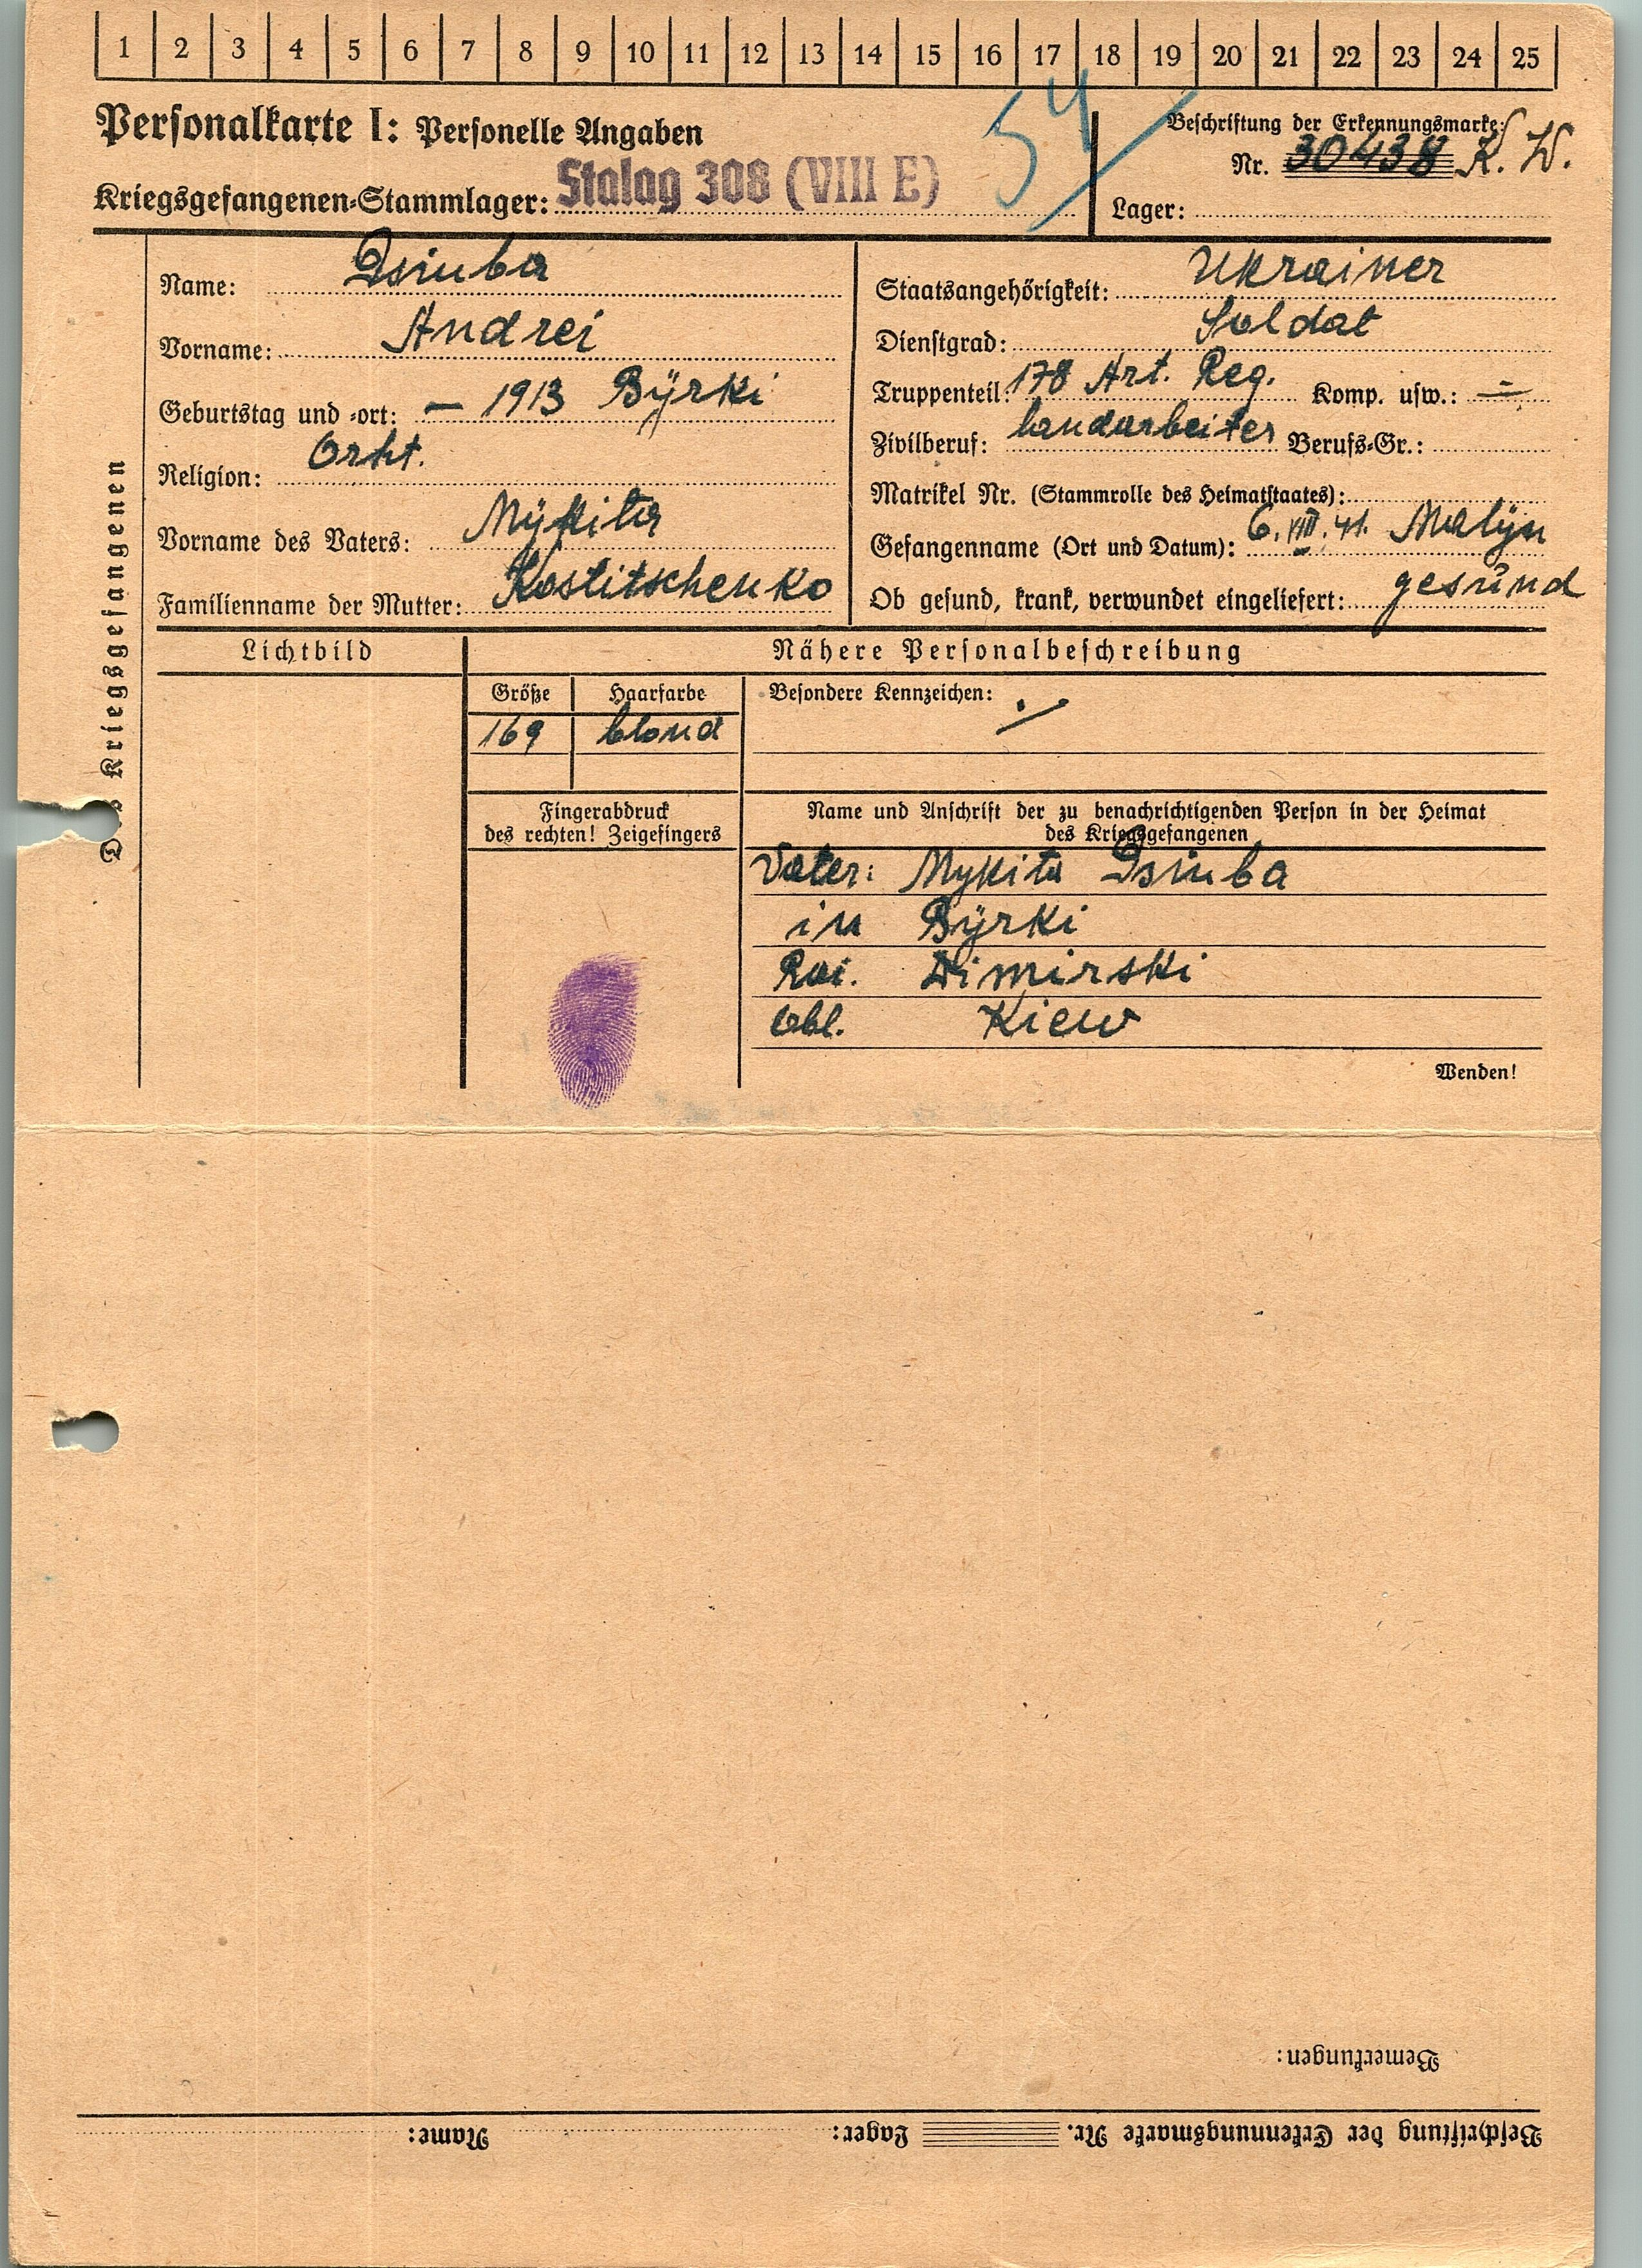 1 2 3 4 5 6 7 8 9 10 11 12 13 14 15 16 17 18 19 20 21 22 23 24 25
54
Personalkarte I: Personelle Angaben
Kriegsgefangenen-Stammlager: Stalag 308 (VIII E)
Beschriftung der Erkennungsmarke:
Nr. 30438 K. W.
Lager:
Des Kriegsgefangenen
Name: Dsiuba
Vorname: Andrei
Geburtstag und -ort: — 1913 Bÿrki
Religion: Orht.
Vorname des Vaters: Mÿkita
Familienname der Mutter: Kostitschenko
Staatsangehörigkeit: Ukrainer
Dienstgrad: Soldat
Truppenteil: 178 Art. Reg. Komp. usw.: —
Zivilberuf: Landarbeiter Berufs-Gr.:
Matrikel Nr. (Stammrolle des Heimatstaates):
Gefangenname (Ort und Datum): 6. VIII. 41. Malÿn
Ob gesund, krank, verwundet eingeliefert: gesund
Lichtbild
Nähere Personalbeschreibung
Größe Haarfarbe Besondere Kennzeichen:
169 blond
Fingerabdruck
des rechten! Zeigefingers
Name und Anschrift der zu benachrichtigenden Person in der Heimat
des Kriegsgefangenen
Vater: Mykita Dsiuba
in Bÿrki
Rai. Dimirski
Obl. Kiew
Wenden!
Bemerkungen:
Beschriftung der Erkennungsmarke Nr. Lager: Name: